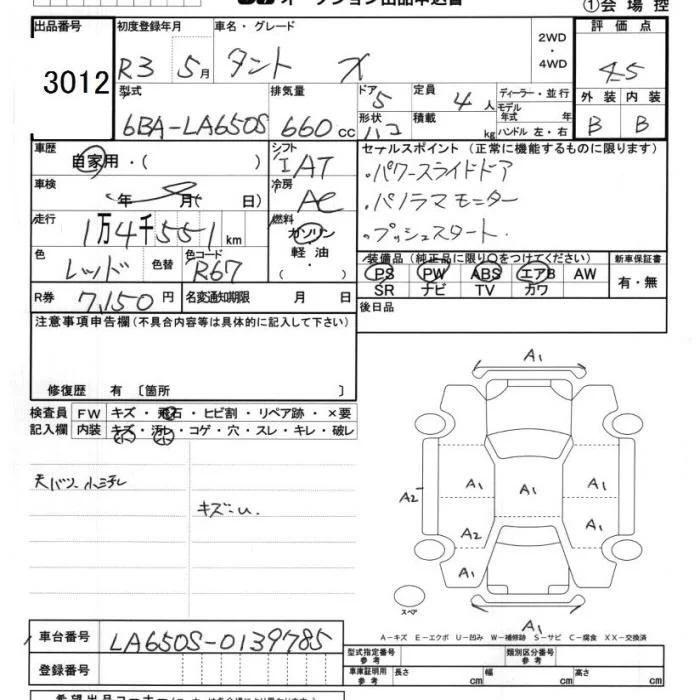 オークション出品申込書 ①会場控
出品番号 初度登録年月 車名・グレード 2WD・4WD 評価点
3012 R3 5月 タント X 4.5
型式 排気量 ドア 5 定員 4人 ディーラー・並行 外装 内装
6BA-LA650S 660cc 形状 ハコ 積載 kg モデル年式 年 ハンドル 左・右 B B
車歴 自家用・( ) シフト IAT セールスポイント(正常に機能するものに限ります)
車検 年 月( 日) 冷房 AC ・パワースライドドア
走行 1万4千551km 燃料 ガソリン・軽油・( ) ・パノラマモニター
・プッシュスタート
色 レッド 色替 色コード R67 装備品(純正品に限り○をつけてください) 新車保証書
PS PW ABS エアB AW 有・無
SR ナビ TV カワ
R券 7,150円 名変通知期限 月 日 後日品
注意事項申告欄(不具合内容等は具体的に記入して下さい)
修復歴 有 〔箇所 〕
検査員記入欄 FW キズ・飛石・ヒビ割・リペア跡・×要
内装 キズ・汚レ・コゲ・穴・スレ・キレ・破レ
キズ=U.
A1
A2 A1 A1 A1
A2 A1
A1
スペア
A1
A-キズ E-エクボ U-凹み W-補修跡 S-サビ C-腐食 XX-交換済
車台番号 LA650S-0139785 型式指定番号 参考 類別区分番号 参考
登録番号 車庫証明用 参考 長さ cm 幅 cm 高さ cm